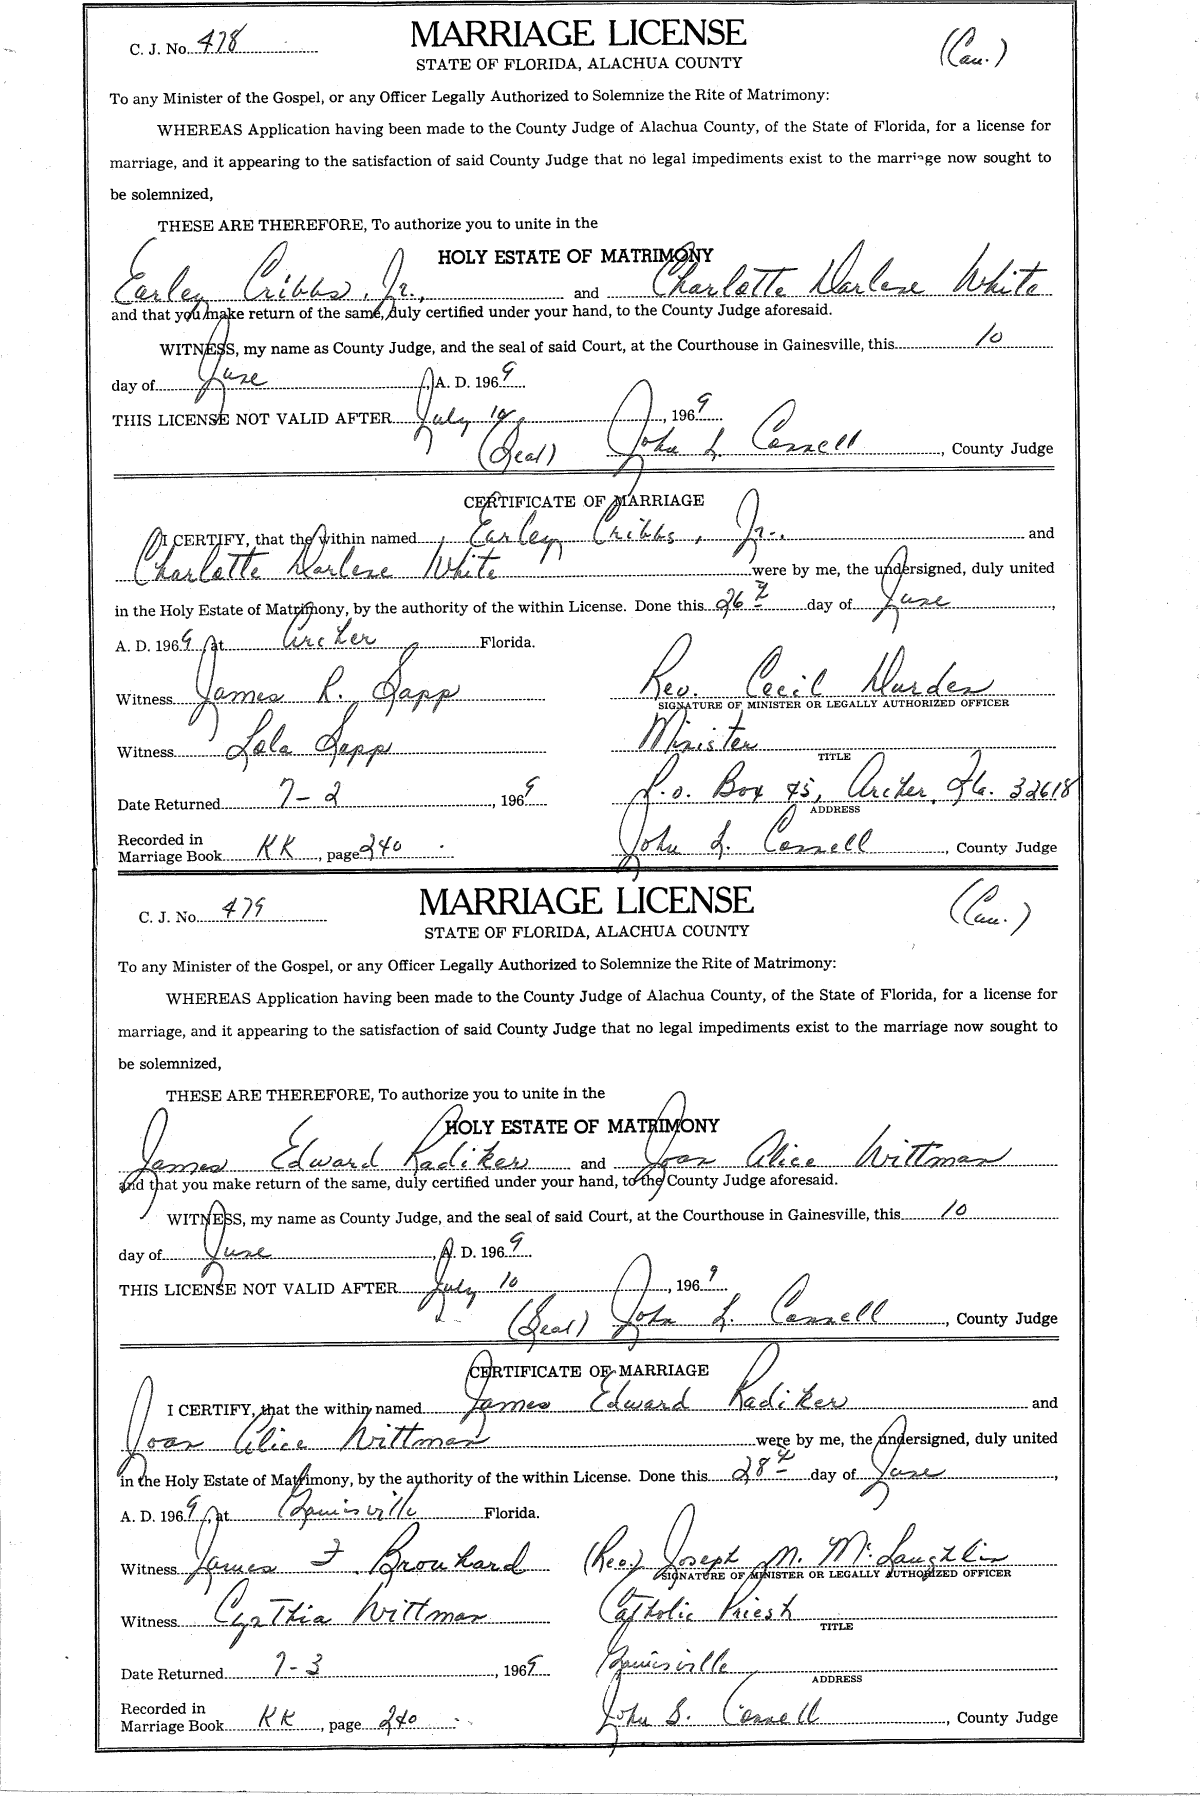 C. J. No. 478 MARRIAGE LICENSE (Cau.)
STATE OF FLORIDA, ALACHUA COUNTY
To any Minister of the Gospel, or any Officer Legally Authorized to Solemnize the Rite of Matrimony:
WHEREAS Application having been made to the County Judge of Alachua County, of the State of Florida, for a license for
marriage, and it appearing to the satisfaction of said County Judge that no legal impediments exist to the marriage now sought to
be solemnized,
THESE ARE THEREFORE, To authorize you to unite in the
HOLY ESTATE OF MATRIMONY
Earley Cribbs, Jr., and Charlotte Darlene White
and that you make return of the same, duly certified under your hand, to the County Judge aforesaid.
WITNESS, my name as County Judge, and the seal of said Court, at the Courthouse in Gainesville, this 10
day of June, A. D. 1969
THIS LICENSE NOT VALID AFTER July 10, 1969
(Seal) John L. Connell, County Judge
CERTIFICATE OF MARRIAGE
I CERTIFY, that the within named Earley Cribbs, Jr., and
Charlotte Darlene White were by me, the undersigned, duly united
in the Holy Estate of Matrimony, by the authority of the within License. Done this 26th day of June,
A. D. 1969, at Archer Florida.
Witness James R. Sapp Rev. Cecil Durden
SIGNATURE OF MINISTER OR LEGALLY AUTHORIZED OFFICER
Witness Lola Sapp Minister
TITLE
Date Returned 7-2, 1969 P.O. Box 45, Archer, Fla. 32618
ADDRESS
Recorded in
Marriage Book KK, page 240 John L. Connell, County Judge
C. J. No. 479 MARRIAGE LICENSE (Cau.)
STATE OF FLORIDA, ALACHUA COUNTY
To any Minister of the Gospel, or any Officer Legally Authorized to Solemnize the Rite of Matrimony:
WHEREAS Application having been made to the County Judge of Alachua County, of the State of Florida, for a license for
marriage, and it appearing to the satisfaction of said County Judge that no legal impediments exist to the marriage now sought to
be solemnized,
THESE ARE THEREFORE, To authorize you to unite in the
HOLY ESTATE OF MATRIMONY
James Edward Radiker and Joan Alice Wittman
and that you make return of the same, duly certified under your hand, to the County Judge aforesaid.
WITNESS, my name as County Judge, and the seal of said Court, at the Courthouse in Gainesville, this 10
day of June, A. D. 1969
THIS LICENSE NOT VALID AFTER July 10, 1969
(Seal) John L. Connell, County Judge
CERTIFICATE OF MARRIAGE
I CERTIFY, that the within named James Edward Radiker and
Joan Alice Wittman were by me, the undersigned, duly united
in the Holy Estate of Matrimony, by the authority of the within License. Done this 28th day of June,
A. D. 1969, at Gainesville Florida.
Witness James F. Brouhard (Rev.) Joseph M. McLaughlin
SIGNATURE OF MINISTER OR LEGALLY AUTHORIZED OFFICER
Witness Cynthia Wittman Catholic Priest
TITLE
Date Returned 7-3, 1969 Gainesville
ADDRESS
Recorded in
Marriage Book KK, page 240 John L. Connell, County Judge